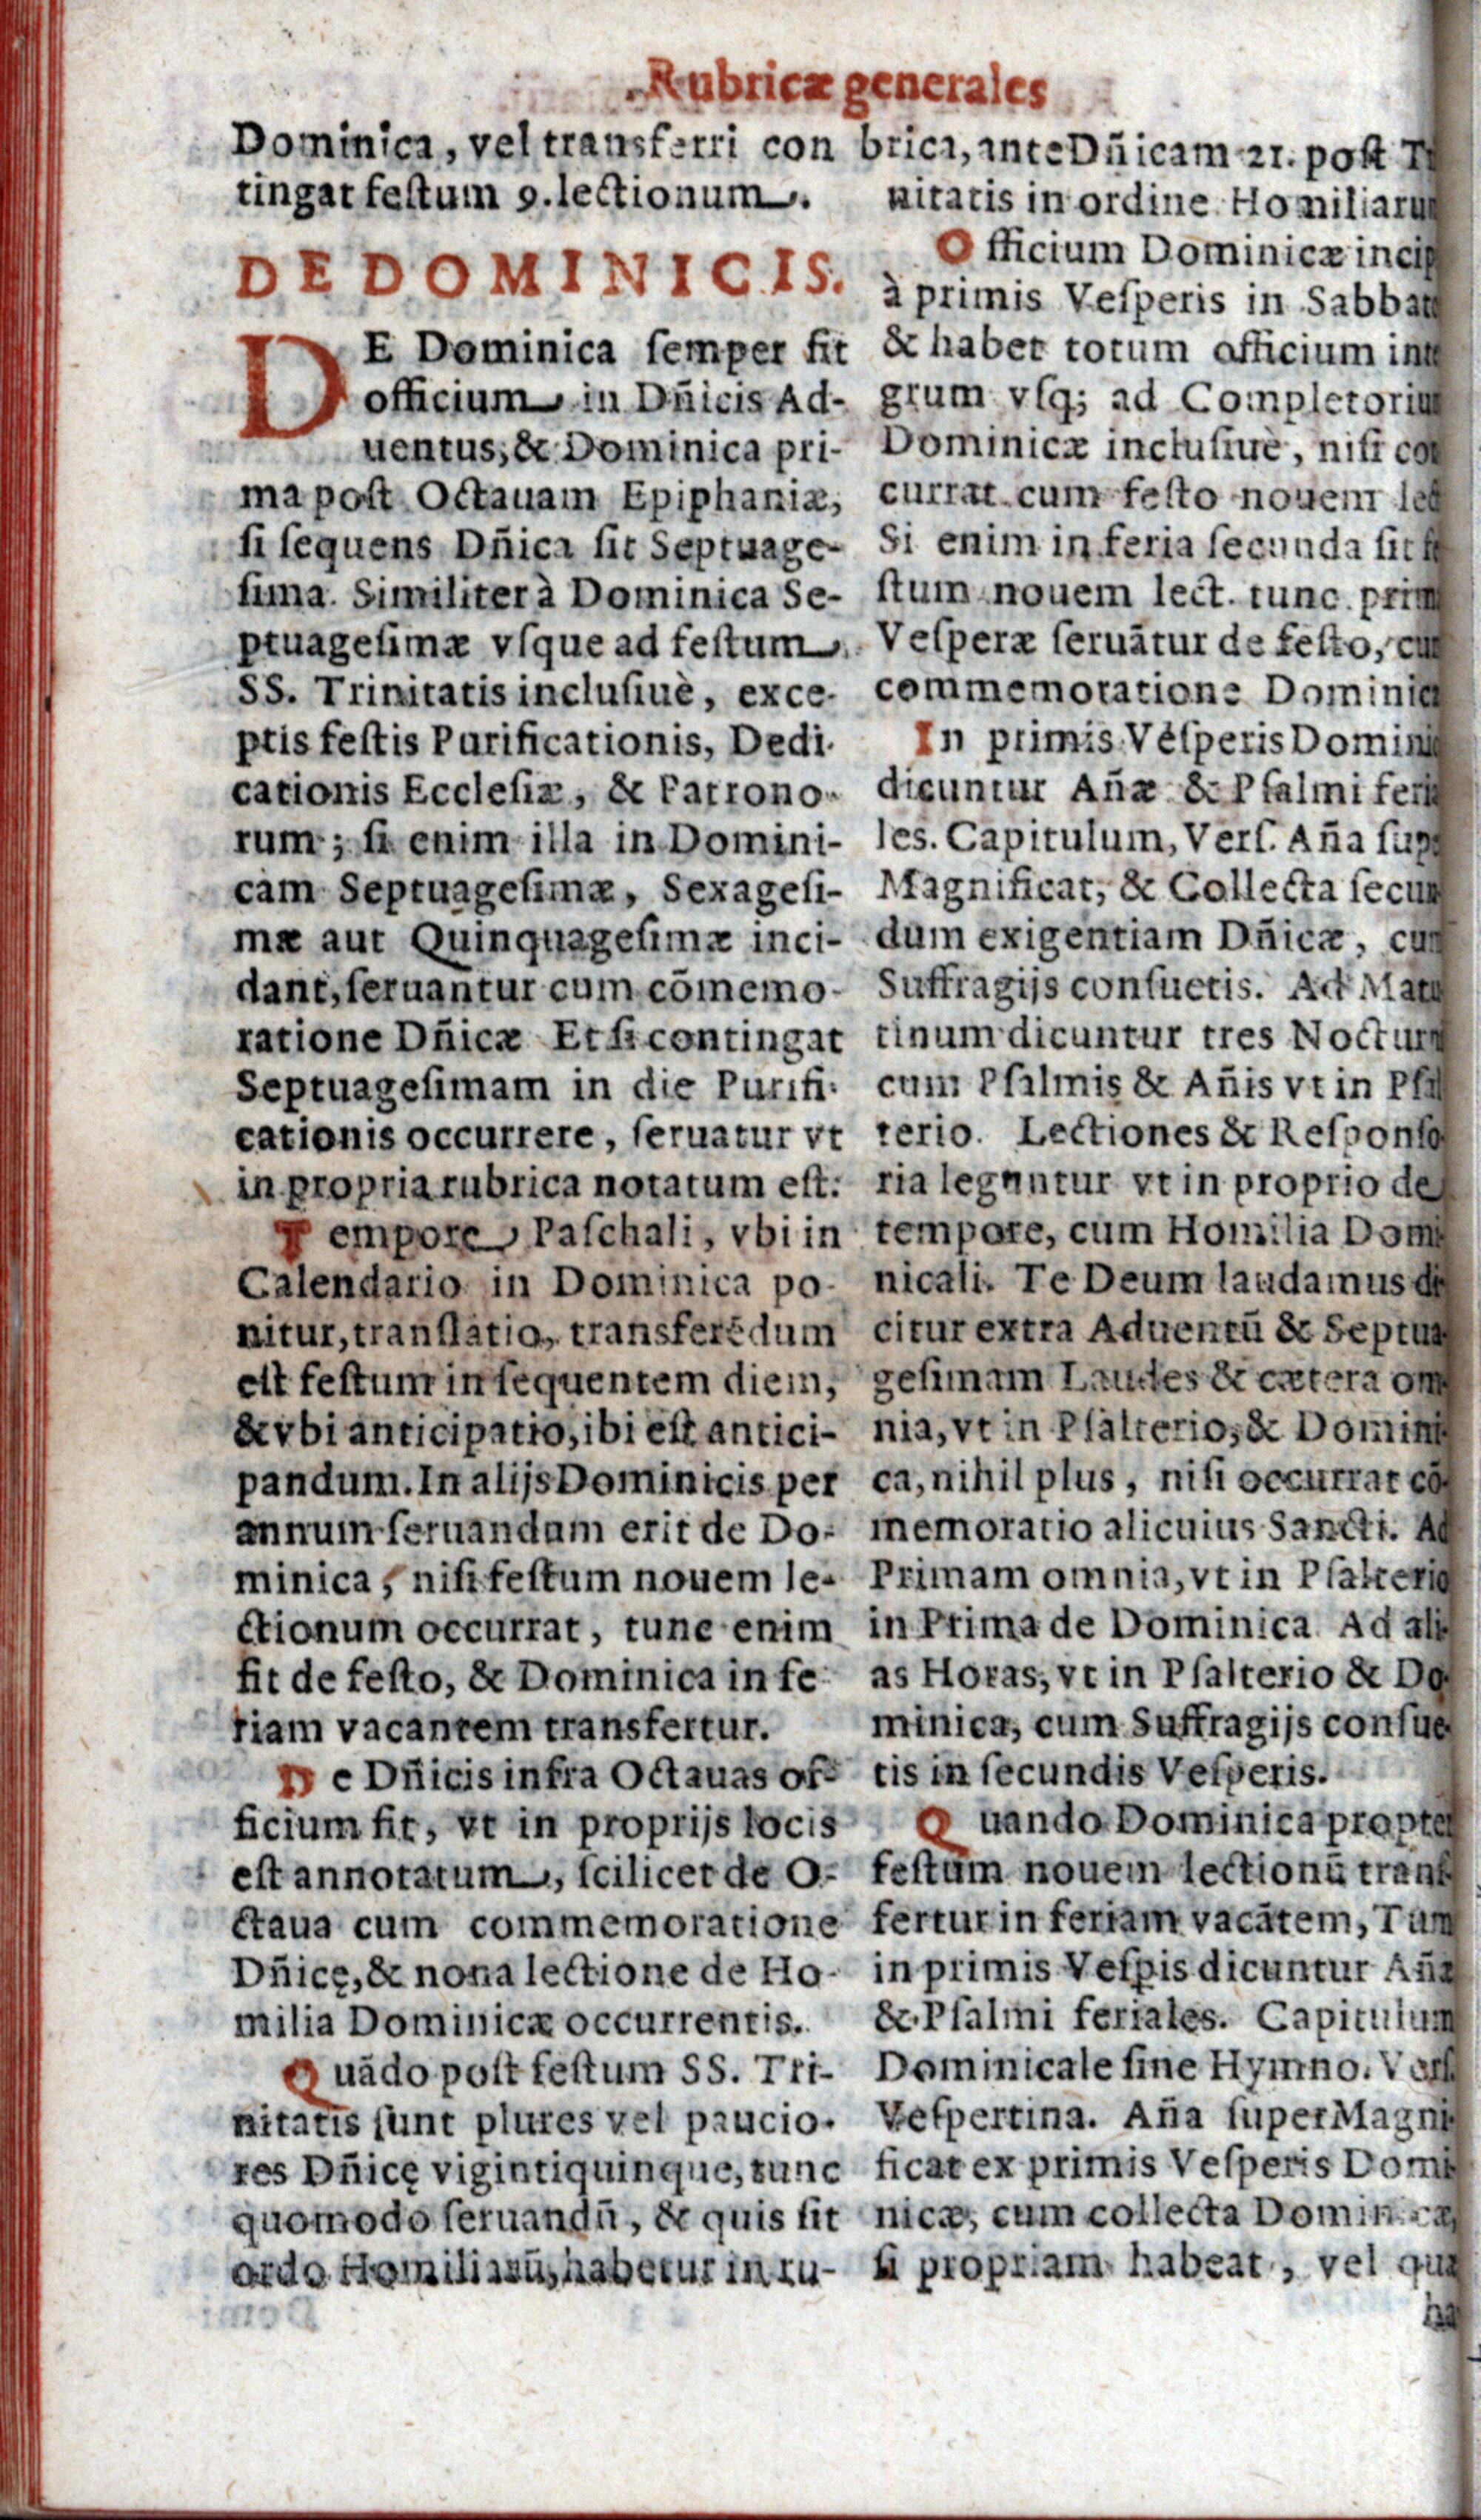 Rubricæ generales
Dominica, vel transferri con
tingat festum 9. lectionum.
DE DOMINICIS.
DE Dominica semper fit
officium in Dñicis Ad-
uentus, & Dominica pri-
ma post Octauam Epiphaniæ,
si sequens Dñica sit Septuage-
sima. Similiter à Dominica Se-
ptuagesimæ vsque ad festum
SS. Trinitatis inclusiuè, exce-
ptis festis Purificationis, Dedi-
cationis Ecclesiæ, & Patrono-
rum; si enim illa in Domini-
cam Septuagesimæ, Sexagesi-
mæ aut Quinquagesimæ inci-
dant, seruantur cum cõmemo-
ratione Dñicæ Et si contingat
Septuagesimam in die Purifi-
cationis occurrere, seruatur vt
in propria rubrica notatum est.
Tempore Paschali, vbi in
Calendario in Dominica po-
nitur, translatio, transferẽdum
est festum in sequentem diem,
& vbi anticipatio, ibi est antici-
pandum. In alijs Dominicis per
annum seruandum erit de Do-
minica, nisi festum nouem le-
ctionum occurrat, tunc enim
fit de festo, & Dominica in fe
riam vacantem transfertur.
De Dñicis infra Octauas of-
ficium fit, vt in proprijs locis
est annotatum, scilicet de O-
ctaua cum commemoratione
Dñicę, & nona lectione de Ho-
milia Dominicæ occurrentis.
Quãdo post festum SS. Tri-
nitatis sunt plures vel paucio-
res Dñicę vigintiquinque, tunc
quomodo seruandũ, & quis sit
ordo Homiliarũ, habetur in ru-
brica, ante Dñicam 21. post
nitatis in ordine
Officium Dominicæ
à primis Vesperis in
& habet totum officium
grum vsq; ad
Dominicæ inclusiuè, nisi
currat cum festo nouem
Si enim in feria secunda sit
stum nouem lect. tunc
Vesperæ seruãtur de festo,
commemoratione
In primis Vesperis
dicuntur Añæ & Psalmi
les. Capitulum, Vers. Aña
Magnificat, & Collecta
dum exigentiam Dñicæ,
Suffragijs consuetis. Ad
tinum dicuntur tres
cum Psalmis & Añis vt in
terio. Lectiones & Responso
ria leguntur vt in proprio de
tempore, cum Homilia Domi
nicali. Te Deum laudamus di
citur extra Aduentũ & Septua
gesimam Laudes & cætera om-
nia, vt in Psalterio, & Domini-
ca, nihil plus, nisi occurrat cõ-
memoratio alicuius Sancti. Ad
Primam omnia, vt in Psalterio
in Prima de Dominica Ad ali-
as Horas, vt in Psalterio & Do-
minica, cum Suffragijs consue-
tis in secundis Vesperis.
Quando Dominica propter
festum nouem lectionũ trans-
fertur in feriam vacãtem, Tum
in primis Vesꝑis dicuntur Añæ
& Psalmi feriales. Capitulum
Dominicale sine Hymno. Vers.
Vespertina. Aña super Magni-
ficat ex primis Vesperis Domi-
nicæ, cum collecta Dominicæ,
si propriam habeat, vel quæ